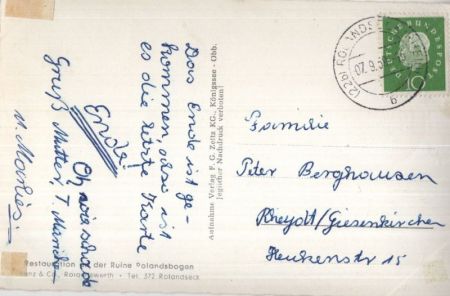 Das Ende ist ge-
kommen, also ist
es die letzte Karte
Ende!
Oh wie schade
Gruß Mutter, T.
u. Marlies.
Aufnahme Verlag F. G. Zeitz KG., Königssee-Obb.
Jeglicher Nachdruck verboten!
Restauration der Ruine Rolandsbogen
& Co., Rolandswerth • Tel. 372 Rolandseck
(22b) ROLANDS
07. 9.
b
DEUTSCHE BUNDESPOST
10
Familie
Peter Berghausen
Rheydt/Giesenkirchen
Heukenstr 15